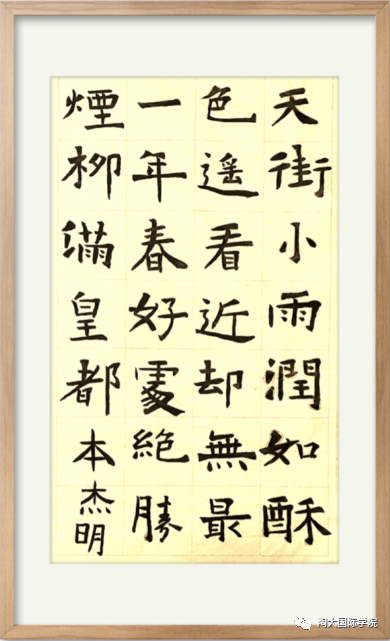 天街小雨潤如酥
色遥看近却無最
一年春好處絶勝
煙柳滿皇都本杰明
大国际学院